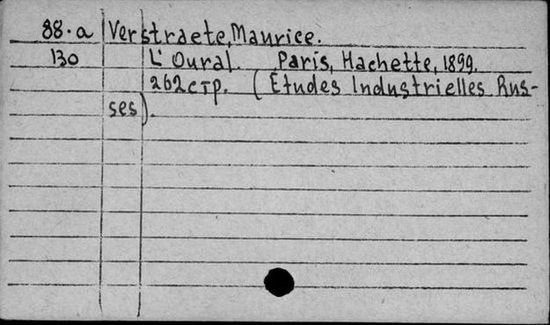 88·a Verstraete, Maurice.
130 L'Oural. Paris, Hachette, 1899.
262стр. (Études Industrielles Rus-
ses).